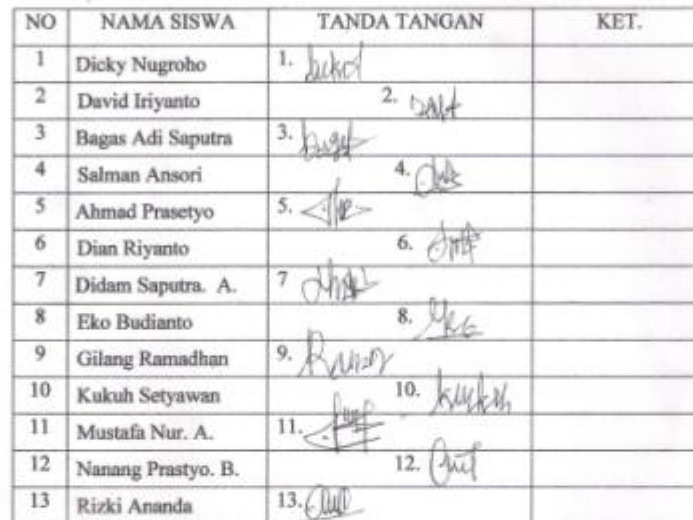 NO NAMA SISWA TANDA TANGAN KET.
1 Dicky Nugroho 1.
2 David Iriyanto 2.
3 Bagas Adi Saputra 3.
4 Salman Ansori 4.
5 Ahmad Prasetyo 5.
6 Dian Riyanto 6.
7 Didam Saputra. A. 7
8 Eko Budianto 8.
9 Gilang Ramadhan 9.
10 Kukuh Setyawan 10. kukuh
11 Mustafa Nur. A. 11.
12 Nanang Prastyo. B. 12.
13 Rizki Ananda 13.